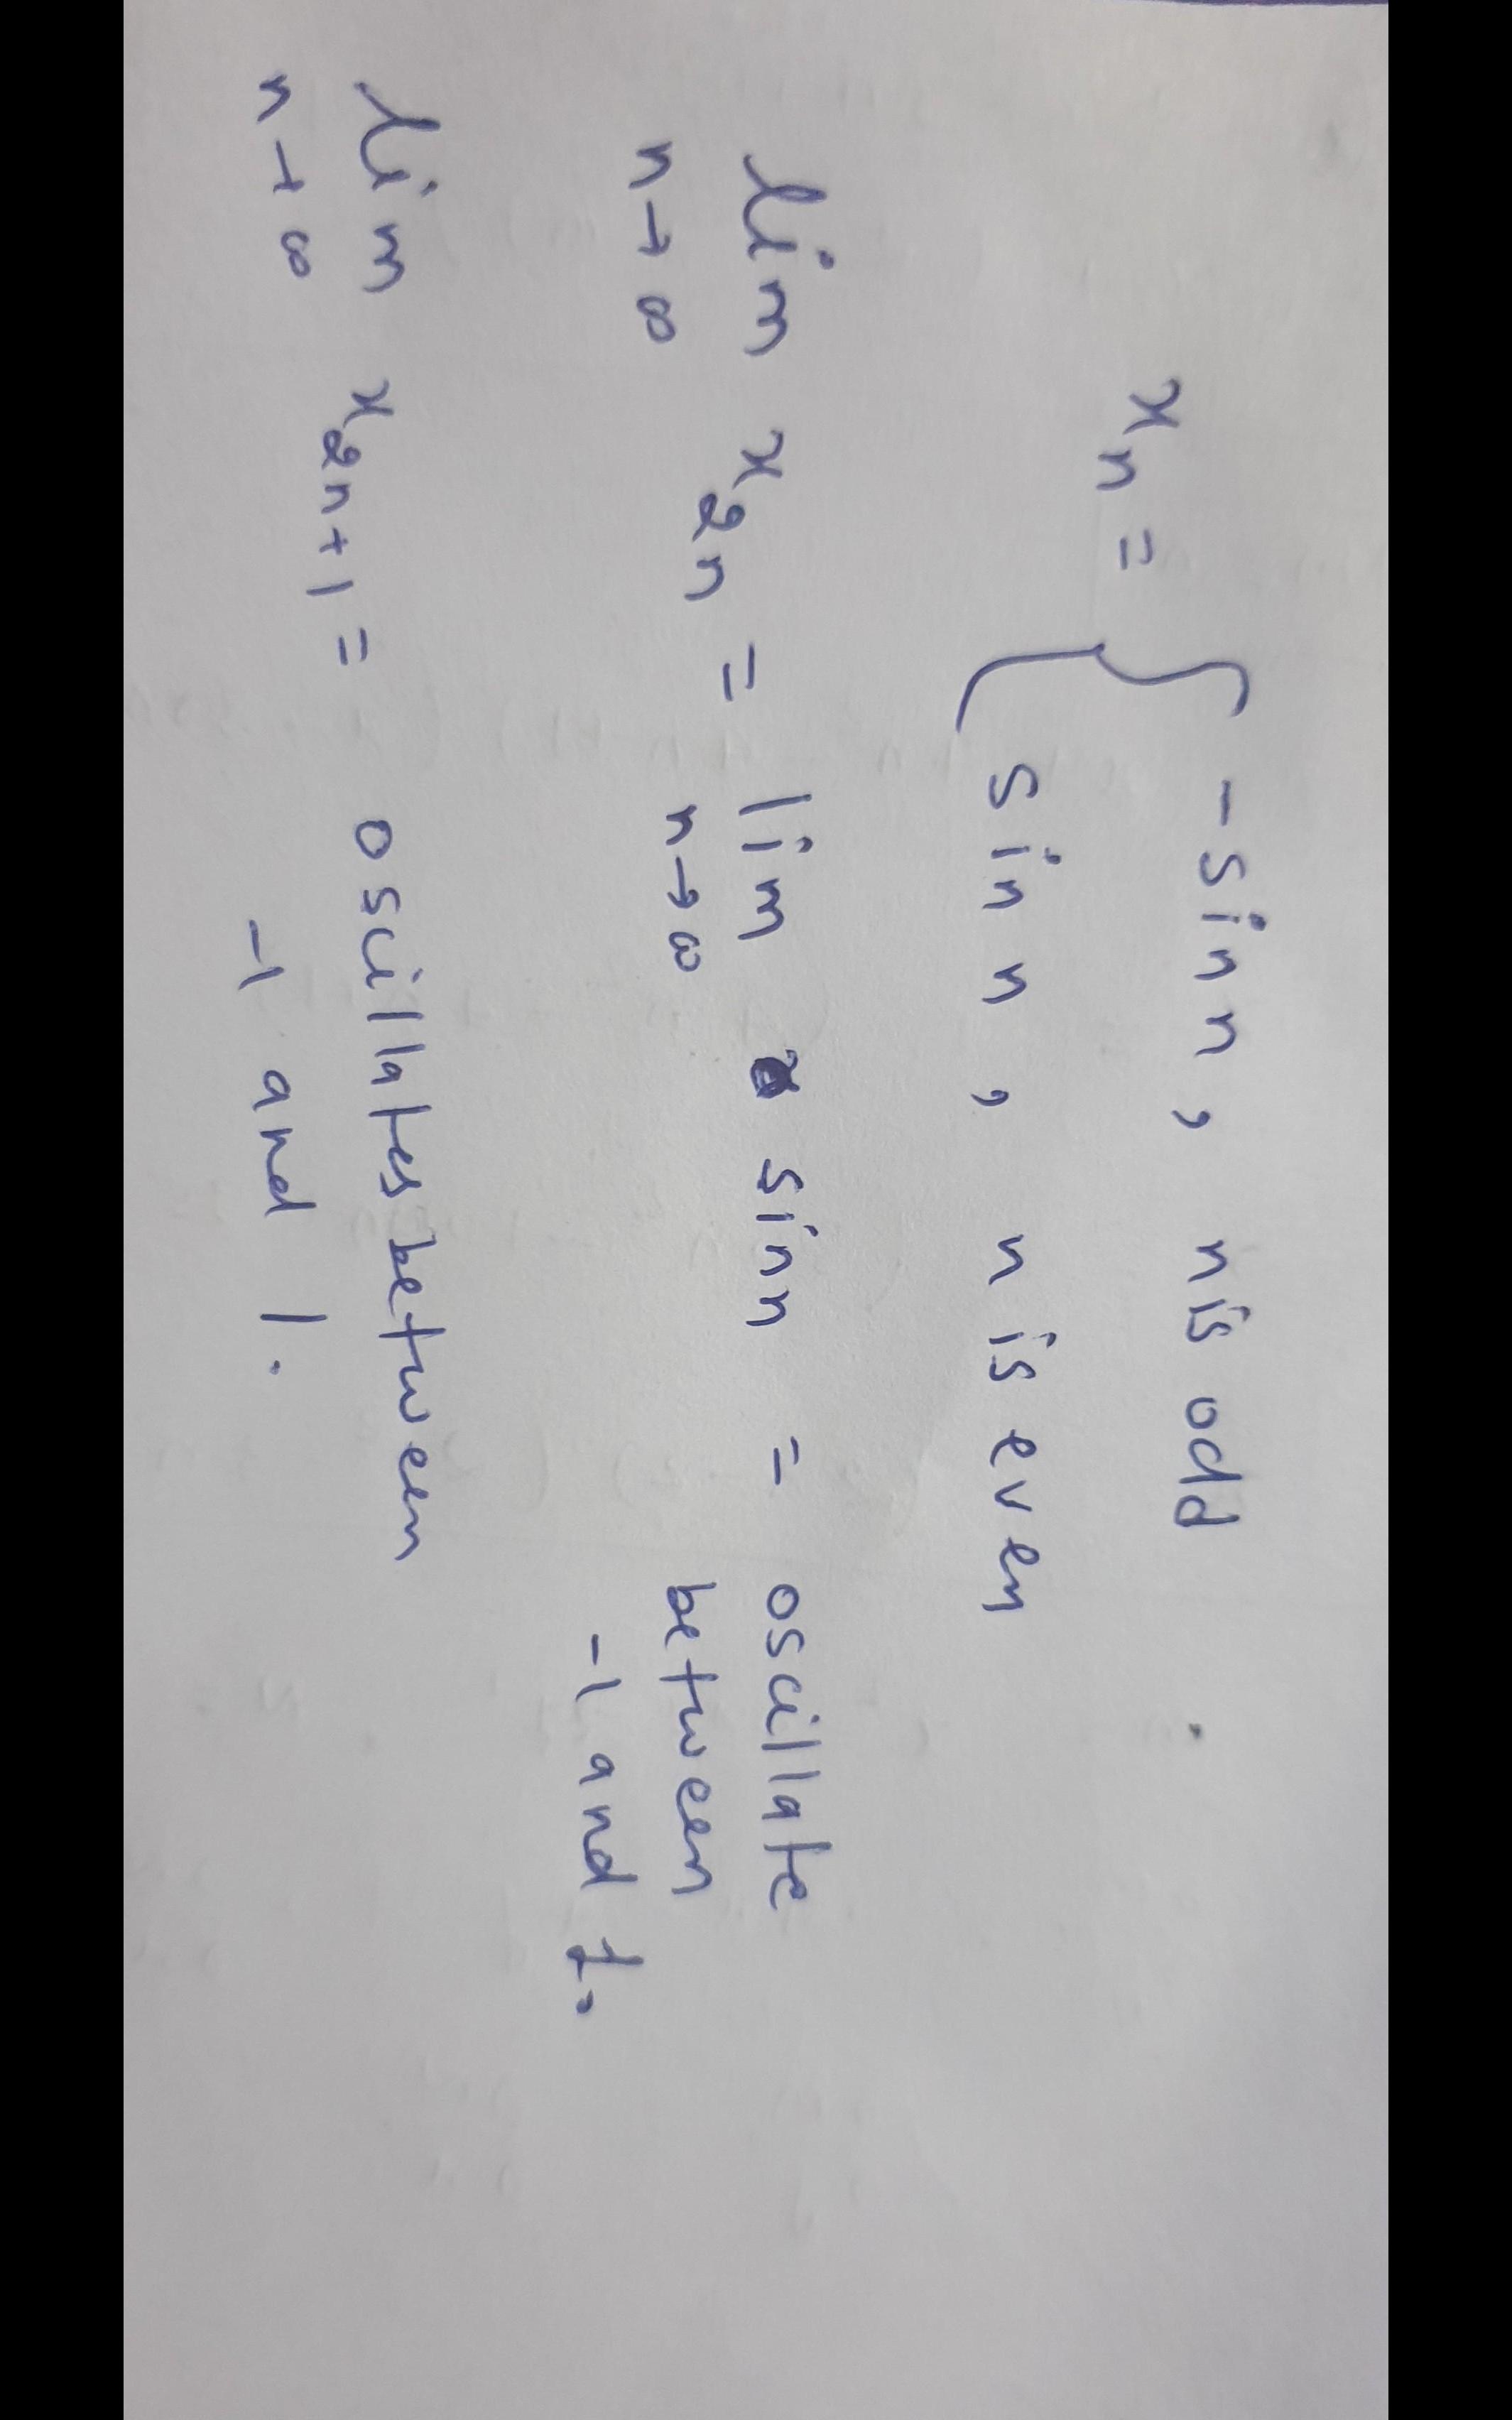 xₙ = { -sin n, n is odd
sin n, n is even
lim x₂ₙ = lim sin n = oscillate
n→∞ n→∞ between
-1 and 1.
lim x₂ₙ₊₁ = oscillates between
n→∞ -1 and 1.